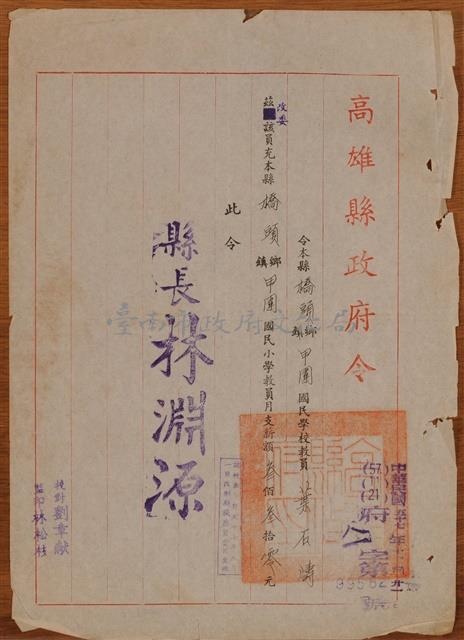 高雄縣政府令
中華民國五十七年十一月廿一
(57)(11)(21)府人字第
99562號
令本縣橋頭鄉鎮甲圍國民學校教員葉石濤
改委
茲該員充本縣橋頭鄉鎮甲圍國民小學教員月支薪額叁佰叁拾零元
此令
縣長林淵源
校對劉章獻
監印林松枝
臺南市政府文化局